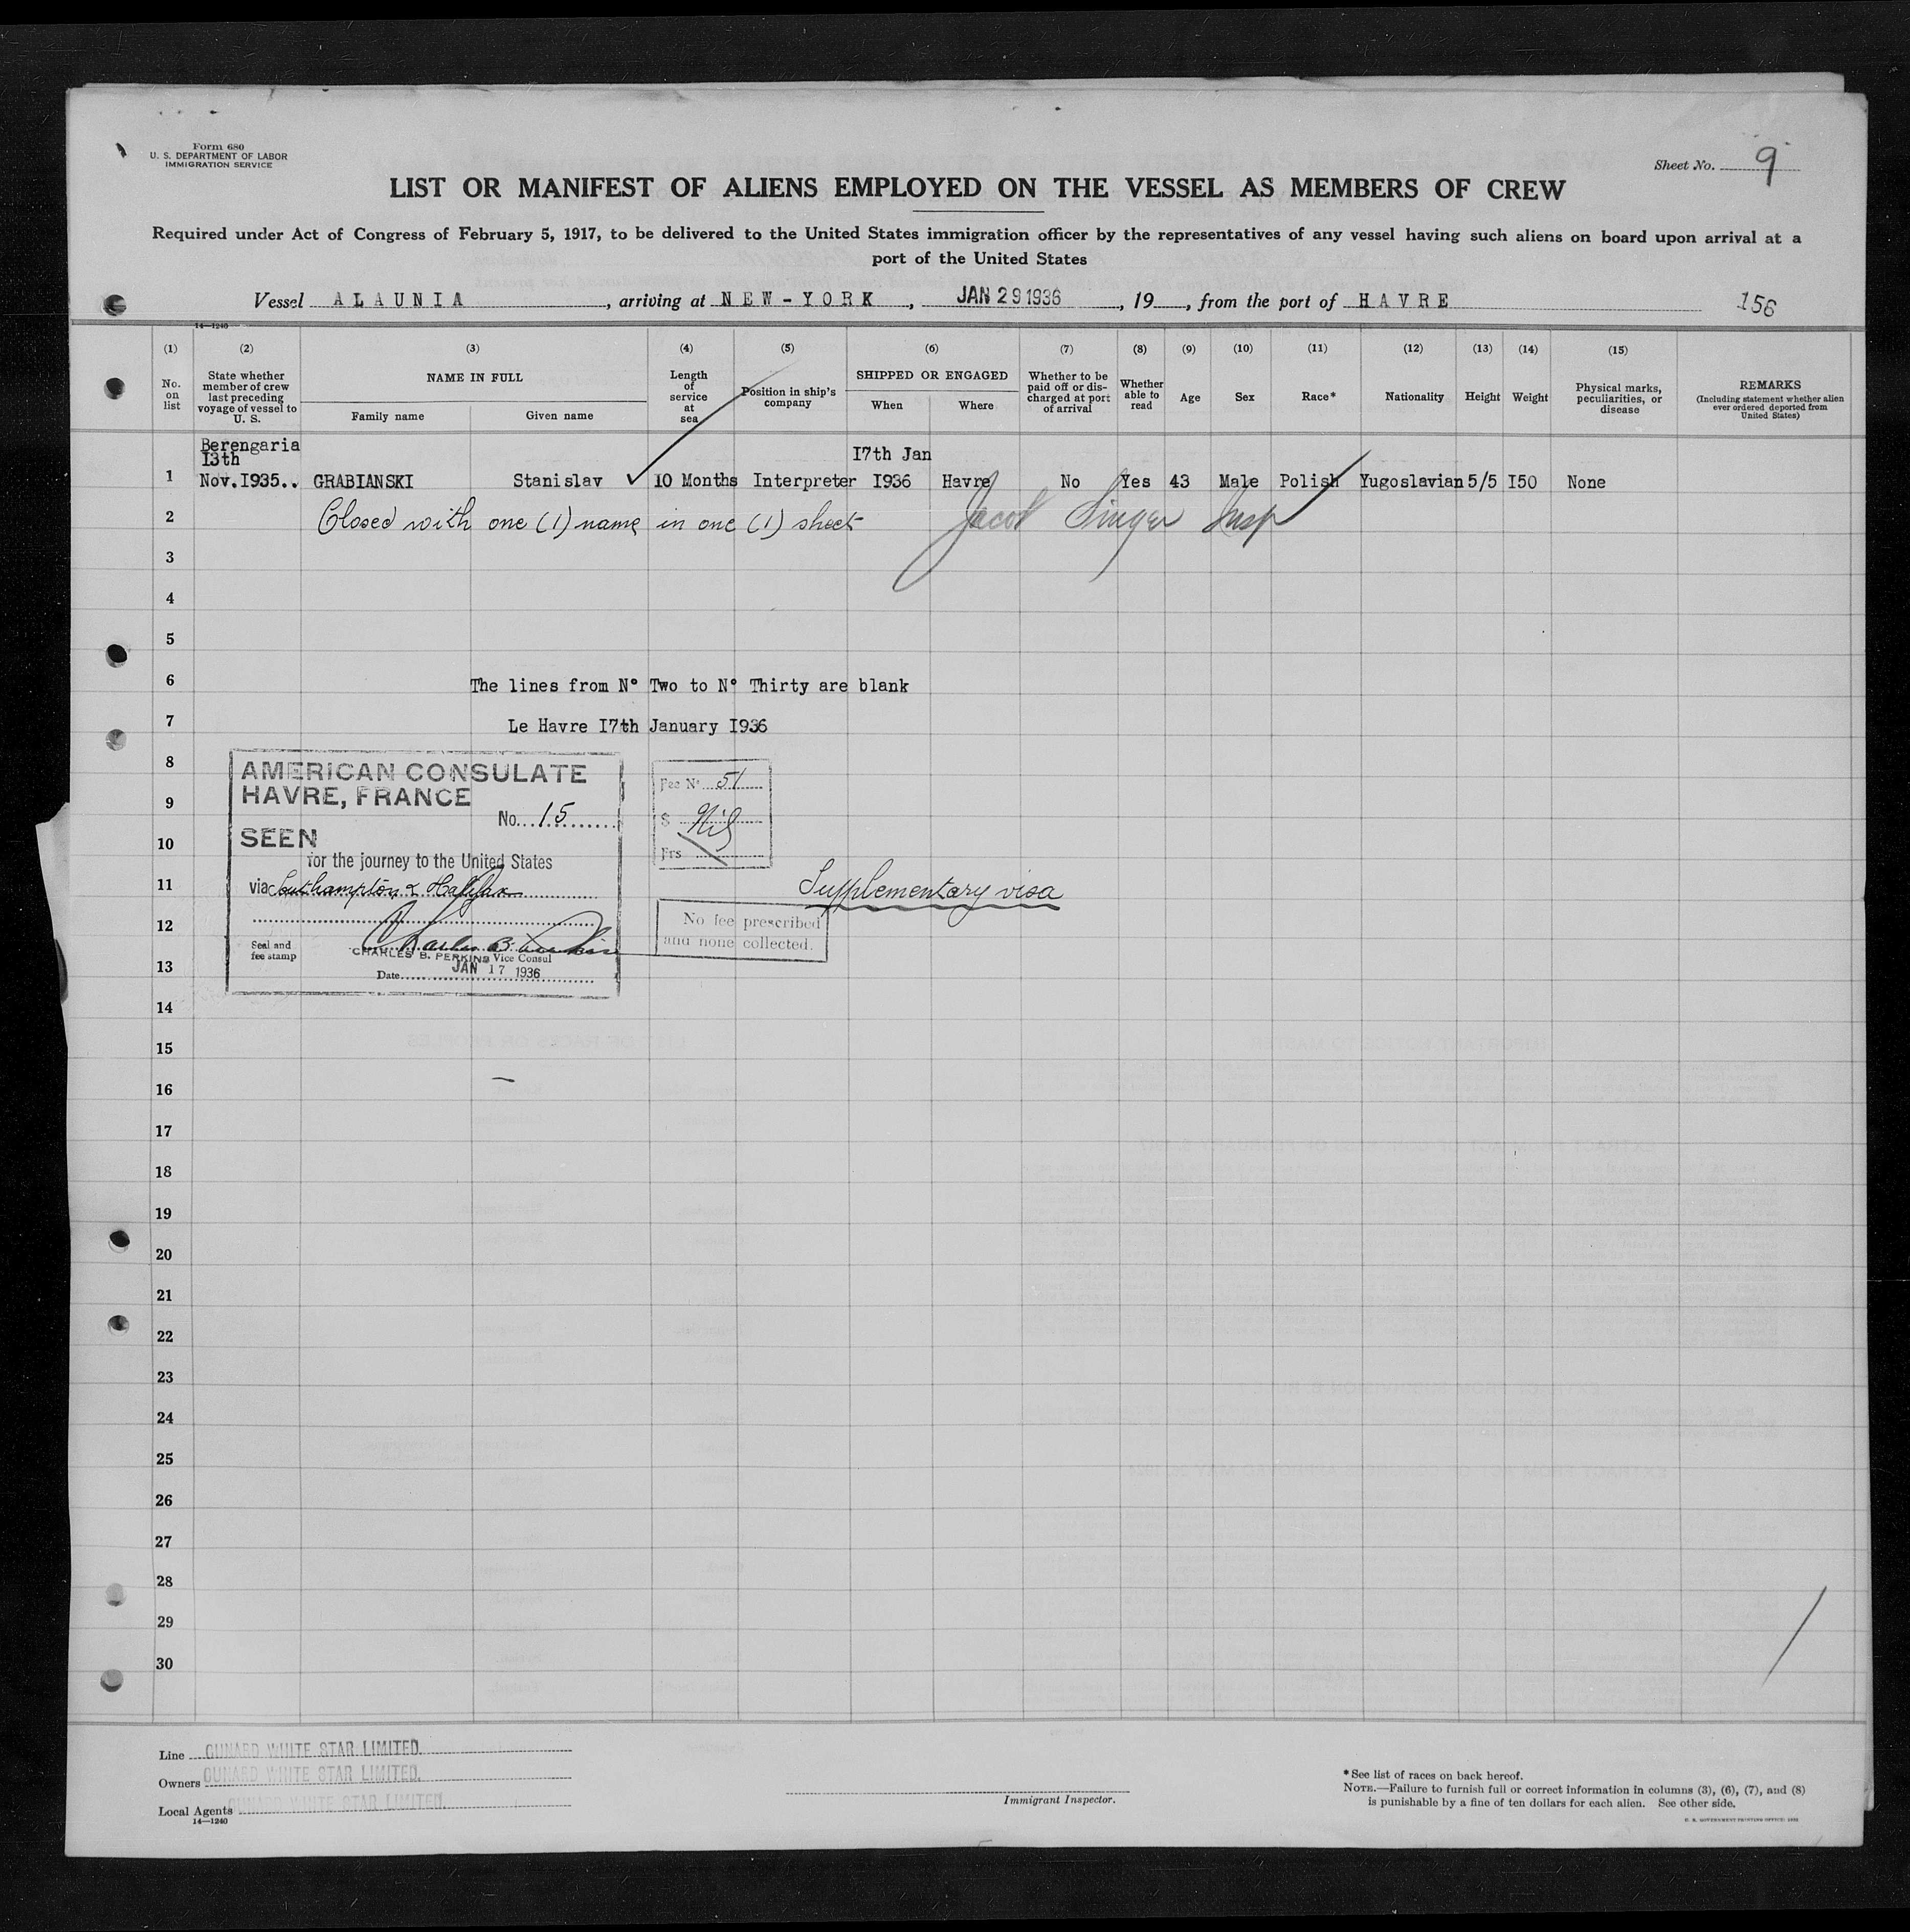 Form 680
U. S. DEPARTMENT OF LABOR
IMMIGRATION SERVICE
Sheet No. 9
LIST OR MANIFEST OF ALIENS EMPLOYED ON THE VESSEL AS MEMBERS OF CREW
Required under Act of Congress of February 5, 1917, to be delivered to the United States immigration officer by the representatives of any vessel having such aliens on board upon arrival at a
port of the United States
Vessel ALAUNIA, arriving at NEW-YORK, JAN 29 1936, 19, from the port of HAVRE
156
14—1240
(1) (2) (3) (4) (5) (6) (7) (8) (9) (10) (11) (12) (13) (14) (15)
No. on list
State whether member of crew last preceding voyage of vessel to U. S.
NAME IN FULL
Family name
Given name
Length of service at sea
Position in ship's company
SHIPPED OR ENGAGED
When
Where
Whether to be paid off or discharged at port of arrival
Whether able to read
Age
Sex
Race*
Nationality
Height
Weight
Physical marks, peculiarities, or disease
REMARKS
(Including statement whether alien ever ordered deported from United States)
Berengaria
I3th
I7th Jan
1 Nov.I935.. GRABIANSKI Stanislav ✓ 10 Months Interpreter I936 Havre No Yes 43 Male Polish Yugoslavian 5/5 I50 None
2 Closed with one (1) name in one (1) sheet Jacob Singer Insp
3
4
5
6 The lines from N° Two to N° Thirty are blank
7 Le Havre I7th January I936
8
9
10
11
12
13
14
15
16
17
18
19
20
21
22
23
24
25
26
27
28
29
30
AMERICAN CONSULATE
HAVRE, FRANCE
No. 15
SEEN
for the journey to the United States
via Southampton & Halifax
Charles B. Perkins
Seal and
fee stamp
CHARLES B. PERKINS Vice Consul
Date JAN 17 1936
Fee N° 51
$ Nil
Frs
Supplementary visa
No fee prescribed
and none collected.
Line CUNARD WHITE STAR LIMITED.
Owners CUNARD WHITE STAR LIMITED.
Local Agents CUNARD WHITE STAR LIMITED.
14—1240
Immigrant Inspector.
*See list of races on back hereof.
NOTE.—Failure to furnish full or correct information in columns (3), (6), (7), and (8)
is punishable by a fine of ten dollars for each alien. See other side.